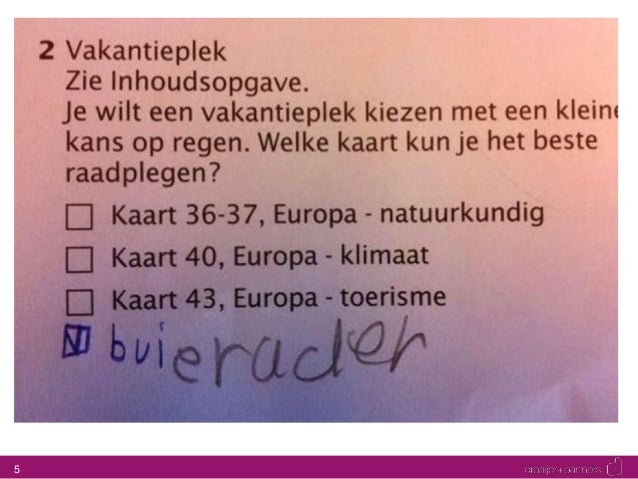 2 Vakantieplek
Zie Inhoudsopgave.
Je wilt een vakantieplek kiezen met een kleine
kans op regen. Welke kaart kun je het beste
raadplegen?
Kaart 36-37, Europa - natuurkundig
Kaart 40, Europa - klimaat
Kaart 43, Europa - toerisme
buierader
5